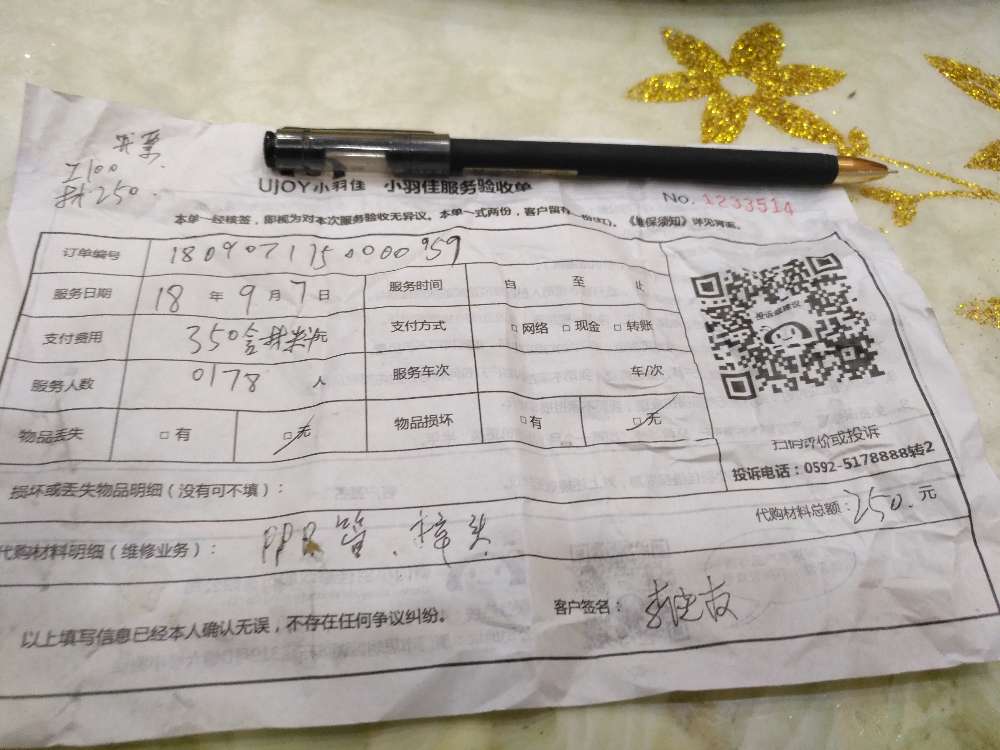 工100
材250.
UJOY小羽佳 小羽佳服务验收单
No. 1233514
本单一经核签，即视为对本次服务验收无异议。本单一式两份，客户留存一份(红)。《维保须知》详见背面。
订单编号 1809071150000959
服务日期 18 年 9 月 7 日 服务时间 自 至 止
支付费用 350含材料元 支付方式 □网络 □现金 □转账
服务人数 0178 人 服务车次 车/次
物品丢失 □有 □无 物品损坏 □有 □无
投诉或建议
扫码评价或投诉
投诉电话：0592-5178888转2
损坏或丢失物品明细（没有可不填）：
代购材料明细（维修业务）： PPR管、 代购材料总额：250.元
以上填写信息已经本人确认无误，不存在任何争议纠纷。 客户签名：